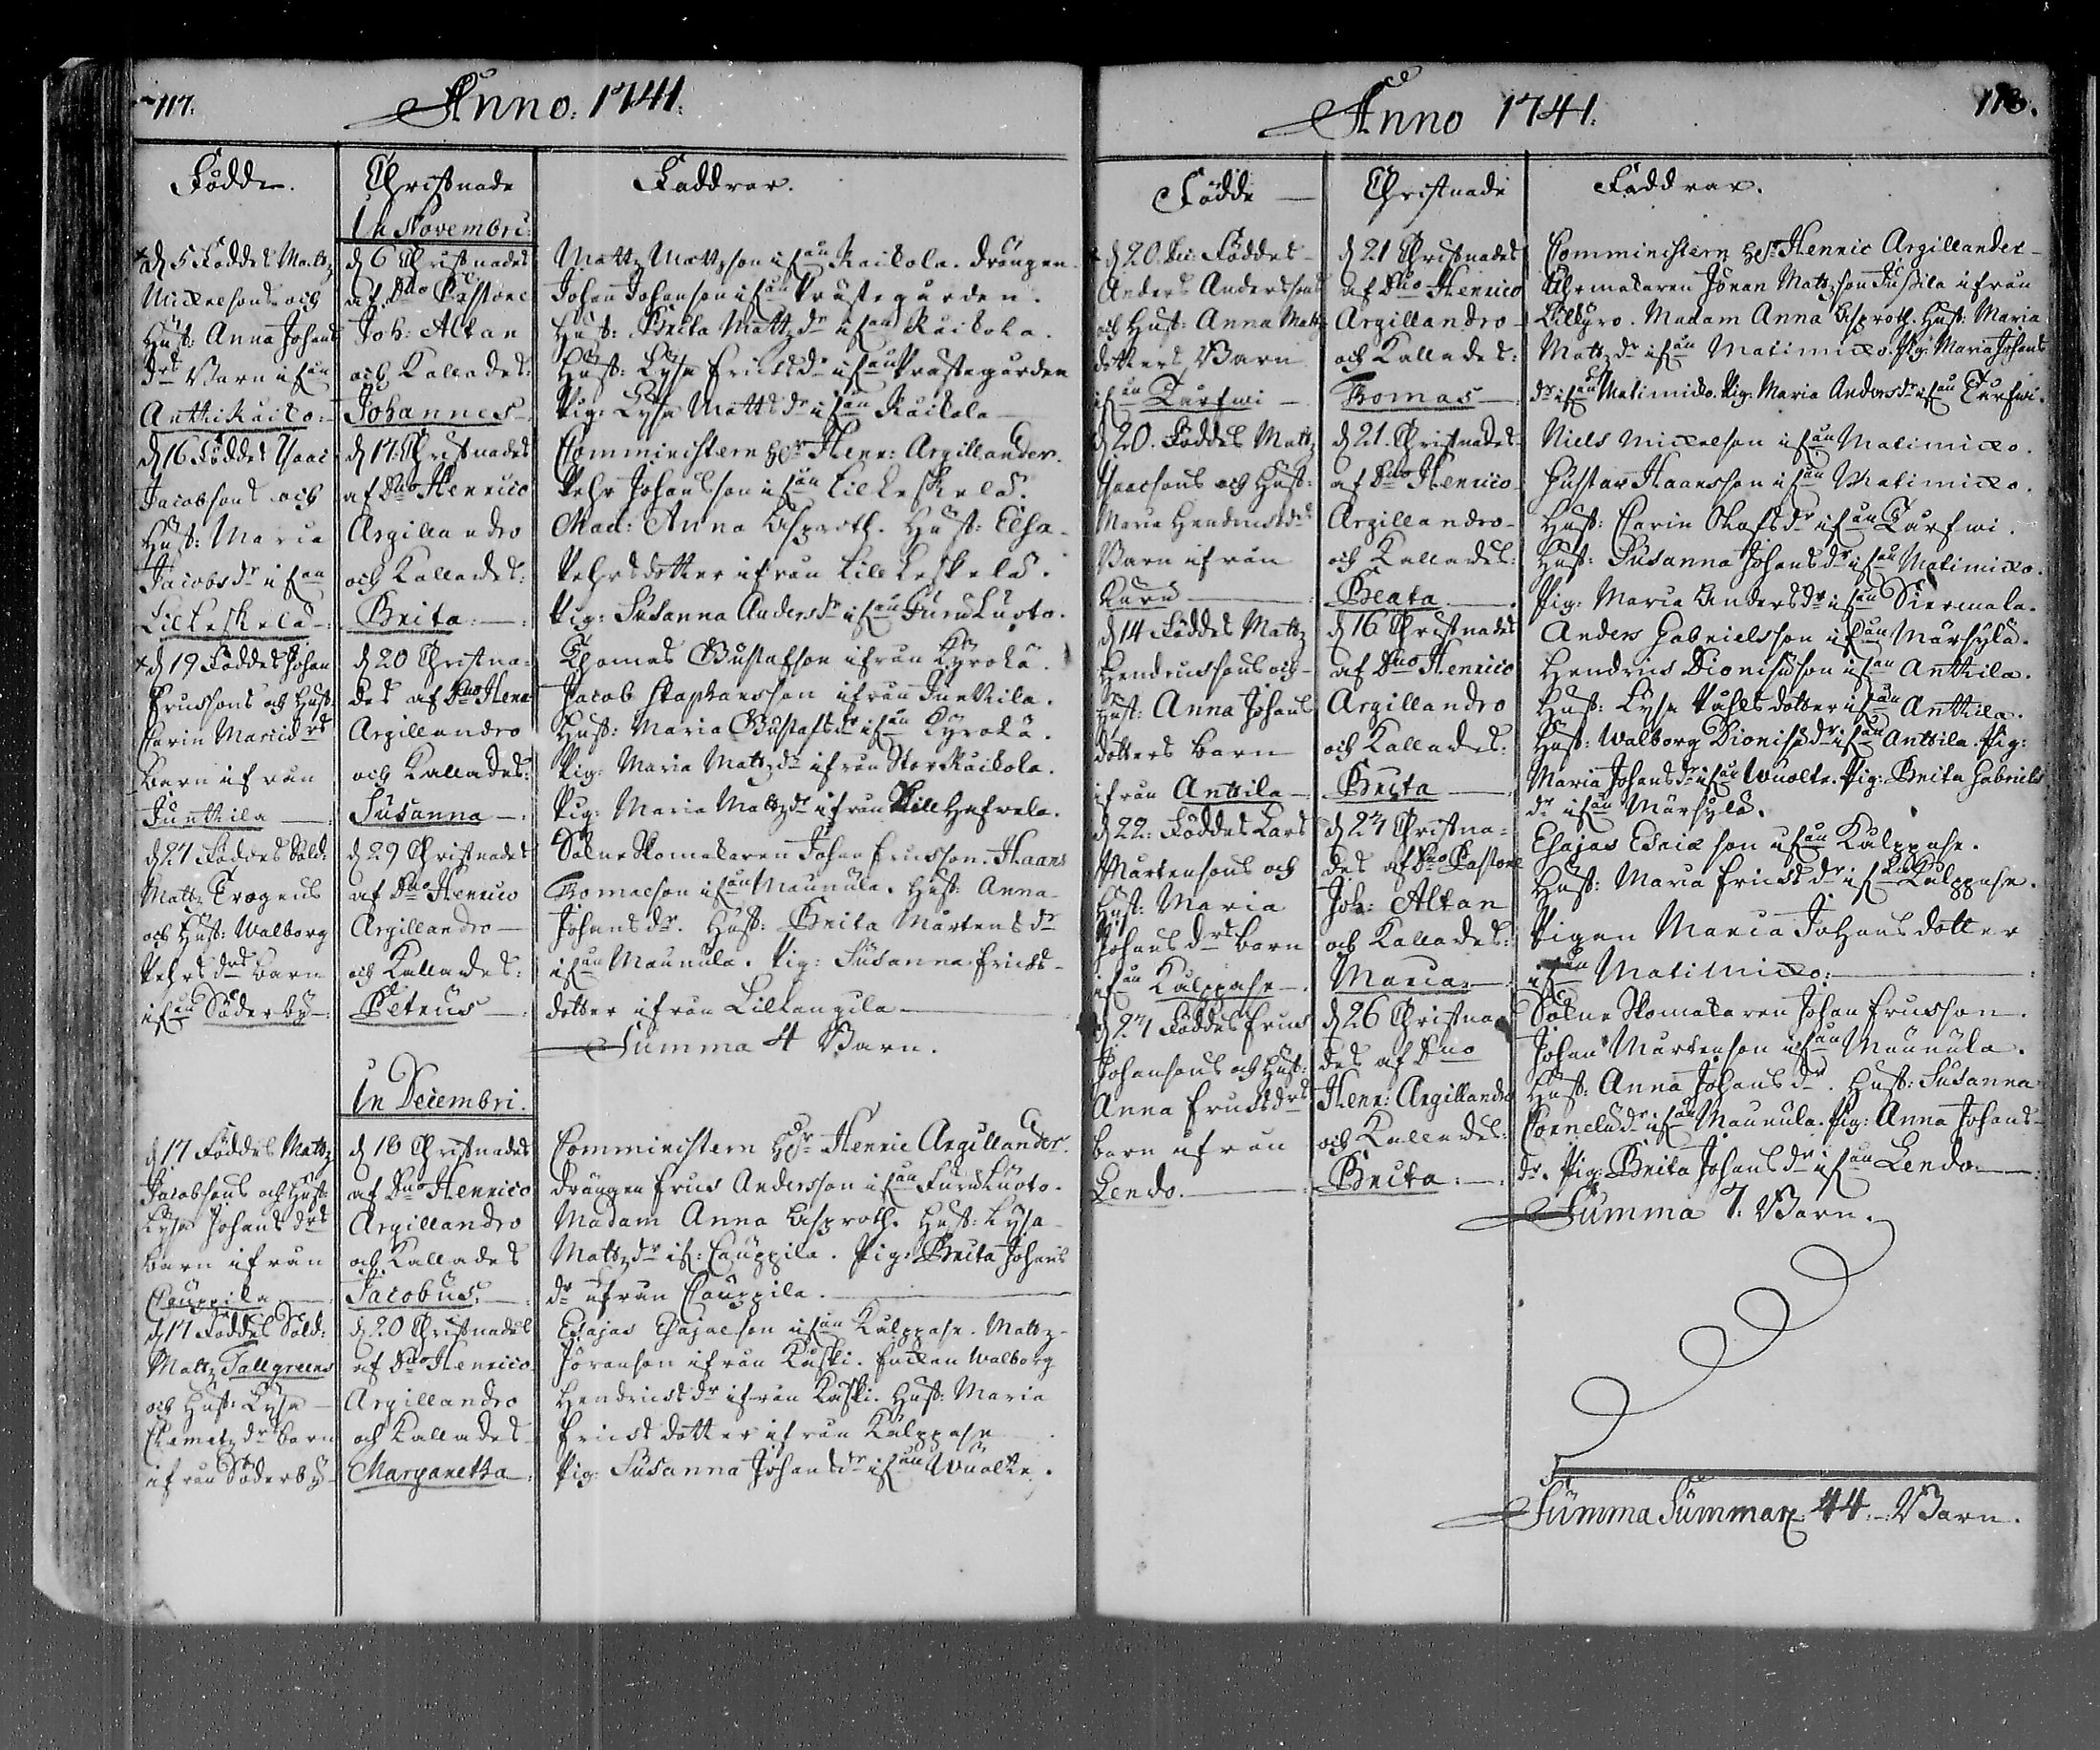 117.
Anno. 1741.
Födde.
Christnade
Faddrar.
In Novembri.
d 5 Föddes Mattz
Mickelsons och
Hust: Anna Johans
drs Barn ifrån
Anttikaiko:
d 6 Christnades
af Dno Pastore
Joh: Altan
och Kallades:
Johannes
Mattz Mattzson ifrån Kaikola. Drängen
Johan Johanson ifrån Prästegården.
Hust: Brita Mattzdr ifrån Kaikola.
Hust: Lysa Ericksdr ifrån Prästegården
Pig: Lysa Mattsdr ifrån Kaikola
d 16 Föddes Isaac
Jacobsons och
Hust: Maria
Jacobsdr ifrån
Lilkeskela
d 17 Christnades
af Dno Henrico
Argillandro
och Kallades:
Brita
Comministern Hr Henr: Argillander.
Pehr Johansson ifrån Lilkeskelä.
Mad: Anna Asproth. Hust: Elsa
Pehrsdotter ifrån Lill Keskelä.
Pig: Susanna Andersdr ifrån Furuluoto.
d 19 Föddes Johan
Ericssons och Hust
Carin Maricdrs
barn ifrån
Junttila
d 20 Christna-
des af Dno Henr
Argillandro
och Kallades:
Susanna
Thomas Gustafson ifrån Kyrolä.
Jacob Staphansson ifrån Junttila.
Hust: Maria Gustafsdr ifrån Kyrolä.
Pig: Maria Mattzdr ifrån Stor Kaikola.
Pig: Maria Mattzdr ifrån Lill Hefvela.
d 27 Föddes Sold:
Mattz Trogens
och Hust: Walborg
Pehrsdrs barn
ifrån Söderby
d 29 Christnades
af Dno Henrico
Argillandro
och Kallades:
Petrus
Sokne Skomakaren Johan Ericsson. Haans
Thomasson ifrån Maunula. Hust: Anna
Johansdr. Hust: Brita Mårtensdr
ifrån Maunula. Pig: Susanna Ericks-
dotter ifrån Lilkangila
Summa 4 Barn.
In Decembri.
d 17 Föddes Mattz
Jacobsons och Hust:
Lysa Johansdrs
barn ifrån
Cauppila
d 18 Christnades
af Dno Henrico
Argillandro
och Kallades
Jacobus
Comministern Hr Henric Argillander.
Drängen Erics Andersson ifrån Furuluoto.
Madam Anna Asproth. Hust: Lysa
Mattzdr if: Cauppila. Pig: Brita Johans
dr ifrån Cauppila.
d 17 Föddes Sold:
Mattz Tallgreens
och Hust: Lysa
Clemetzdrs barn
ifrån Söderby
d 20 Christnades
af Dno Henrico
Argillandro
och Kallades
Margaretha
Esajas Esajæson ifrån Kalppasn. Mattz
Jöranson ifrån Kaski. Enckan Walborg
Hendricksdr ifrån Kaski. Hust: Maria
Ericksdotter ifrån Kalppasn
Pig: Susanna Johansdr ifrån Wuolte.
118.
Anno 1741.
Födde
Christnade
Faddrar.
d 20. Föddes
Anders Anderssons
och Hust: Anna Mattz
dotters Barn
ifrån Turfwi
d 21 Christnades
af Dno Henrico
Argillandro
och Kallades:
Thomas
Comministern Hr Henric Argillander
Uhrmakaren Jöran Mattzson Jussila ifrån
Lillkyro. Madam Anna Asproth. Hust: Maria
Mattzdr ifrån Matimicko. Pig: Maria Johans
dr ifrån Matimicko. Pig: Maria Andersdr ifrån Turfwi.
d 20. Föddes Mattz
Isaacsons och Hust:
Maria Hendricksdrs
Barn ifrån
d 21. Christnades
af Dno Henrico
Argillandro
och Kallades:
Beata
Niels Mickelson ifrån Matimicko.
Gustav Haansson ifrån Matimicko.
Hust: Carin Olofsdr ifrån Turfwi.
Hust: Susanna Johansdr ifrån Matimicko.
Pig: Maria Andersdr ifrån Siermala.
d 14 Föddes Mattz
Hendricssons och
Hust: Anna Johans
dotters barn
ifrån Anttila
d 16 Christnades
af Dno Henrico
Argillandro
och Kallades:
Brita
Anders Gabrielsson ifrån Märsylä.
Hendrics Dionisiison ifrån Anttila.
Hust: Lysa Påhlsdotter ifrån Anttila.
Hust: Walborg Dionisiidr ifrån Anttila. Pig:
Maria Johansdr ifrån Wuolte. Pig: Brita Gabriels
dr ifrån Märsylä.
d 22. Föddes Lars
Mårtensons och
Hust: Maria
Johansdrs barn
ifrån Kalppasn
d 24 Christna-
des af Dno Pastore
Joh: Altan
och Kallades:
Maria
Esajas Esaiæson ifrån Kalppasn.
Hust: Maria Ericksdr ifrån Kalppasn.
Pigan Maria Johansdotter
ifrån Matimicko:
d 24 Föddes Erics
Johansons och Hust:
Anna Ericksdrs
barn ifrån
Lendo.
d 26 Christna
des af Dno
Henr: Argillandro
och Kallades:
Brita
Sokne Skomakaren Johan Ericsson.
Johan Mårtenson ifrån Maunula.
Hust: Anna Johansdr. Hust: Susanna
Corneliidr ifrån Maunula. Pig: Anna Johans
dr. Pig: Brita Johansdr ifrån Lendo
Summa 7. Barn.
Summa Summar. 44. Barn.